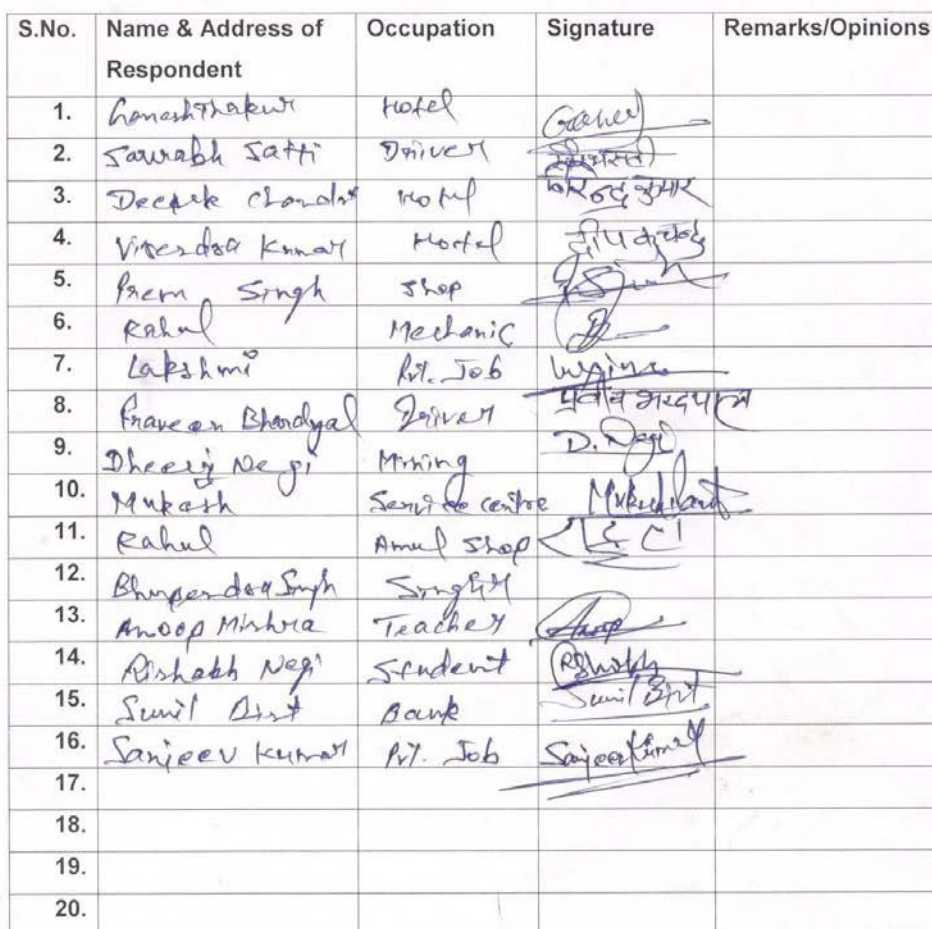 S.No. Name & Address of Respondent Occupation Signature Remarks/Opinions
1. Ganesh Thakur Hotel Ganesh
2. Saurabh Satti Driver
3. Deepak Chandra Hotel कुमार
4. Virendra Kumar Hotel दीपक चन्द्र
5. Prem Singh Shop
6. Rahul Mechanic
7. Lakshmi Pvt. Job
8. Praveen Bhardyal Driver
9. Dheeraj Negi Mining D. Negi
10. Mukesh Service centre
11. Rahul Amul Shop
12. Bhupendra Singh
13. Anoop Mishra Teacher Anoop
14. Rishabh Negi Student Rishabh
15. Sunil Bist Bank Sunil Bist
16. Sanjeev Kumar Pvt. Job Sanjeev Kumar
17.
18.
19.
20.